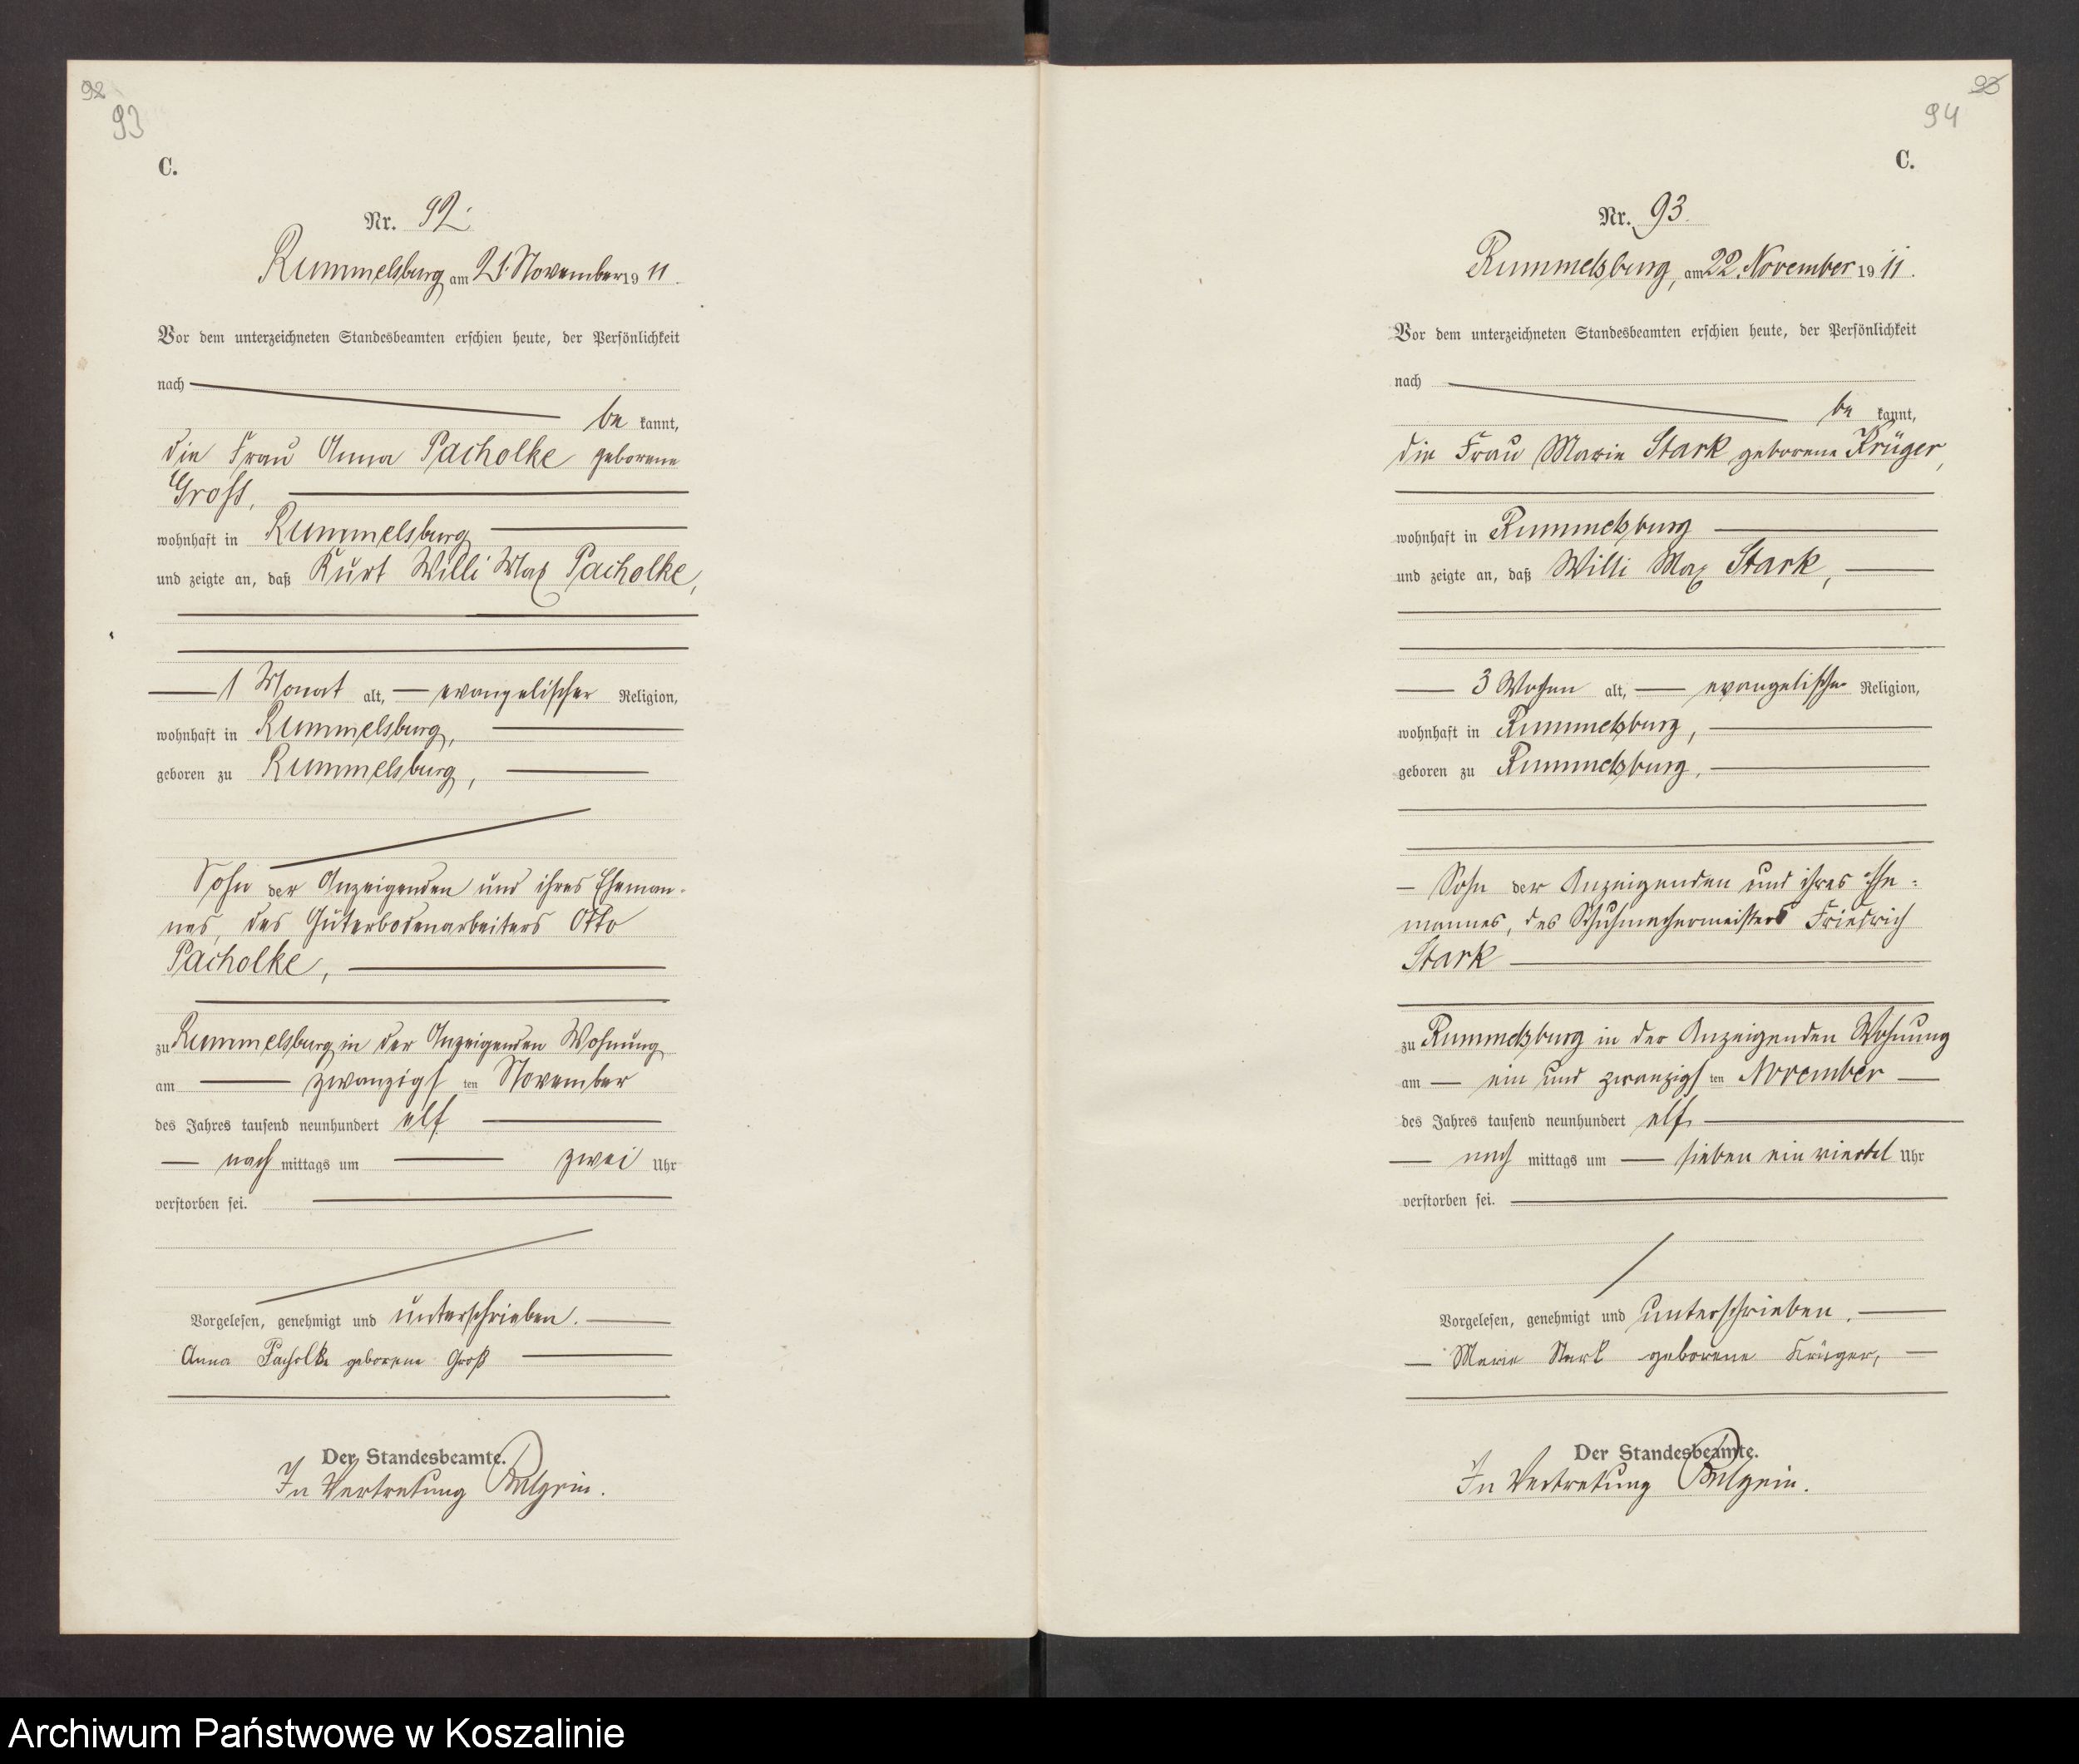 92
93
C.
Nr. 92.
Rummelsburg am 21. November 1911.
Vor dem unterzeichneten Standesbeamten erschien heute, der Persönlichkeit
nach
be kannt,
die Frau Anna Pacholke geborene
Groß,
wohnhaft in Rummelsburg
und zeigte an, daß Kurt Willi Max Pacholke,
1 Monat alt, evangelischer Religion,
wohnhaft in Rummelsburg,
geboren zu Rummelsburg,
Sohn der Anzeigenden und ihres Eheman-
nes, des Güterbodenarbeiters Otto
Pacholke,
zu Rummelsburg in der Anzeigenden Wohnung
am zwanzigsten November
des Jahres tausend neunhundert elf
nach mittags um zwei Uhr
verstorben sei.
Vorgelesen, genehmigt und unterschrieben.
Anna Pacholke geborene Groß
Der Standesbeamte.
In Vertretung
93
94
C.
Nr. 93.
Rummelsburg, am 22. November 1911.
Vor dem unterzeichneten Standesbeamten erschien heute, der Persönlichkeit
nach
be kannt,
die Frau Marie Stark geborene Krüger,
wohnhaft in Rummelsburg
und zeigte an, daß Willi Max Stark,
3 Wochen alt, evangelischer Religion,
wohnhaft in Rummelsburg,
geboren zu Rummelsburg,
Sohn der Anzeigenden und ihres Ehe-
mannes, des Schuhmachermeisters Friedrich
Stark
zu Rummelsburg in der Anzeigenden Wohnung
am ein und zwanzigsten November
des Jahres tausend neunhundert elf,
nach mittags um sieben ein viertel Uhr
verstorben sei.
Vorgelesen, genehmigt und unterschrieben.
Marie Stark geborene Krüger,
Der Standesbeamte.
In Vertretung
Archiwum Państwowe w Koszalinie